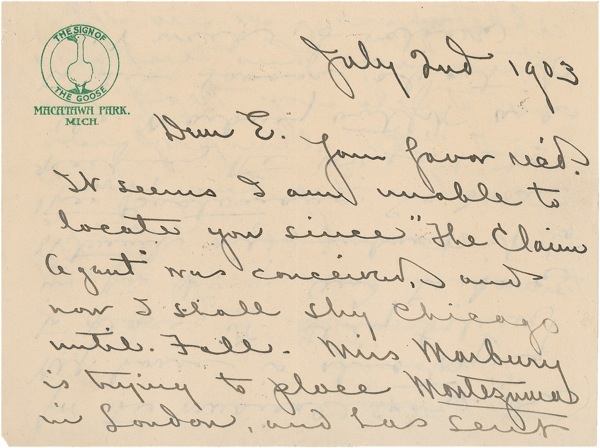 THE SIGN OF
THE GOOSE
MACATAWA PARK.
MICH.
July 2nd 1903
Dear E.
Your favor rec'd.
It seems I am unable to
locate you since "The Claim
Agent" was conceived, and
now I shall shy Chicago
until Fall. Miss Marbury
is trying to place Montezumas
in London, and has sent